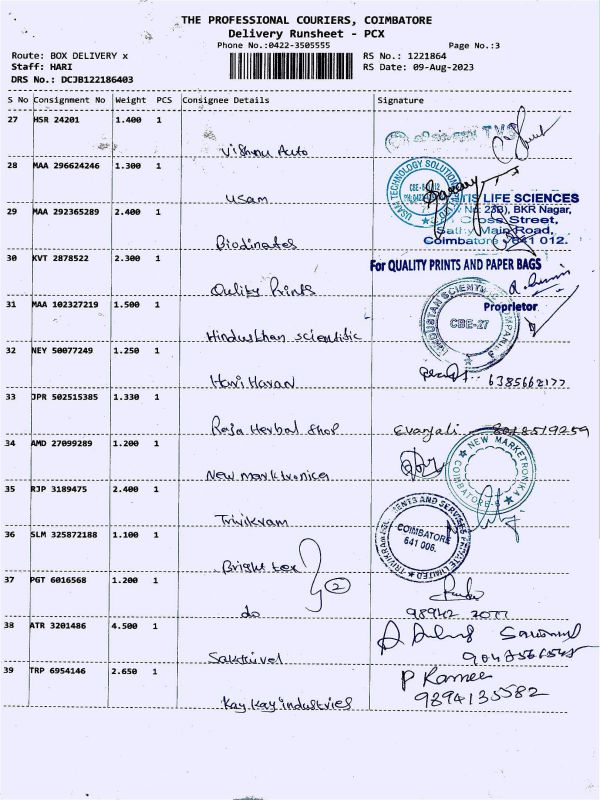 THE PROFESSIONAL COURIERS, COIMBATORE
Delivery Runsheet - PCX
Phone No.:0422-3505555 Page No.:3
Route: BOX DELIVERY x RS No.: 1221864
Staff: HARI RS Date: 09-Aug-2023
DRS No.: DCJB122186403
S No Consignment No Weight PCS Consignee Details Signature
27 HSR 24201 1.400 1
TVS
Vishnu Auto
28 MAA 296624246 1.300 1
USAM TECHNOLOGY SOLUTION
Usam
LIFE SCIENCES
29 MAA 292365289 2.400 1
BKR Nagar,
Cross Street,
Main Road,
Biodinates
Coimbatore - 641 012.
30 KVT 2878522 2.300 1
For QUALITY PRINTS AND PAPER BAGS
Quility Prints
31 MAA 102327219 1.500 1
Proprietor
HINDUSTAN SCIENTIFIC COMPANY
CBE-27
Hindusthan scientific
32 NEY 50077249 1.250 1
Hari Haran 6385662177
33 JPR 502515385 1.330 1
Raja Herbal Shop Evanjali 8018519259
34 AMD 27099289 1.200 1
NEW MARKETRONIKA
COIMBATORE-6
New marktronica
35 RJP 3189475 2.400 1
Trivikram
36 SLM 325872188 1.100 1
COIMBATORE
641 006.
PRIVATE LIMITED
Bright tex
2
37 PGT 6016568 1.200 1
do
38 ATR 3201486 4.500 1
Sakthivel
39 TRP 6954146 2.650 1
P Ramee
Kay Kay industries 9894135582